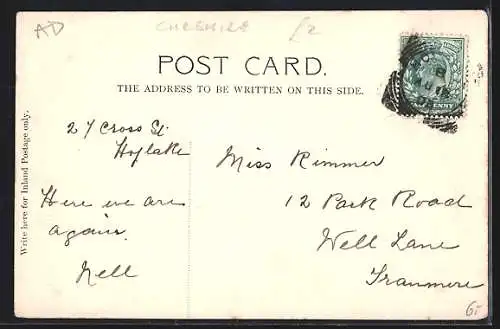 AD
CHESHIRE
£2
POST CARD.
THE ADDRESS TO BE WRITTEN ON THIS SIDE.
Write here for Inland Postage only.
27 Cross St
Hoylake
Here we are
again.
Nell
Miss Rimmer
12 Park Road
Well Lane
Tranmere
6/-